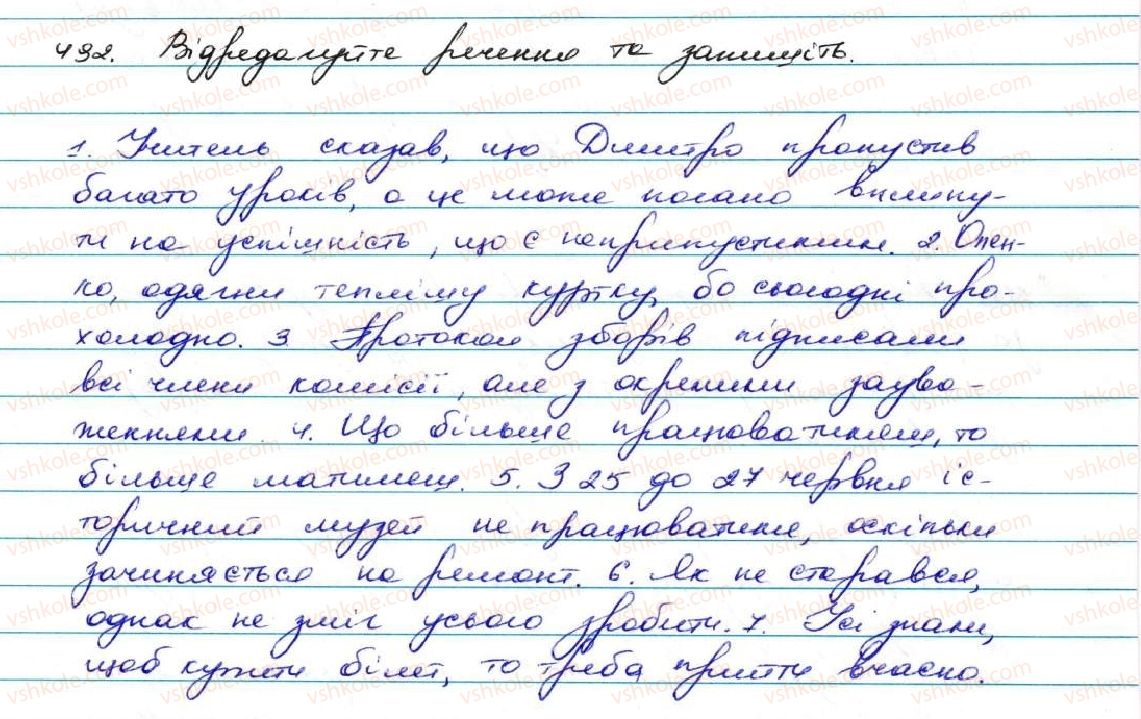 432. Відредагуйте речення та запишіть.
1. Учитель сказав, що Дмитро пропустив
багато уроків, а це може погано вплину-
ти на успішність, що є неприпустимим. 2. Олен-
ко, одягни теплішу куртку, бо сьогодні про-
холодно. 3 Протокол зборів підписали
всі члени комісії, але з окремими заува-
женнями. 4. Що більше працюватимеш, то
більше матимеш. 5. З 25 до 27 червня іс-
торичний музей не працюватиме, оскільки
зачиняється на ремонт. 6. Як не старався,
однак не зміг усього зробити. 7. Усі знали,
щоб купити білет, то треба прийти вчасно.
vshkole.com